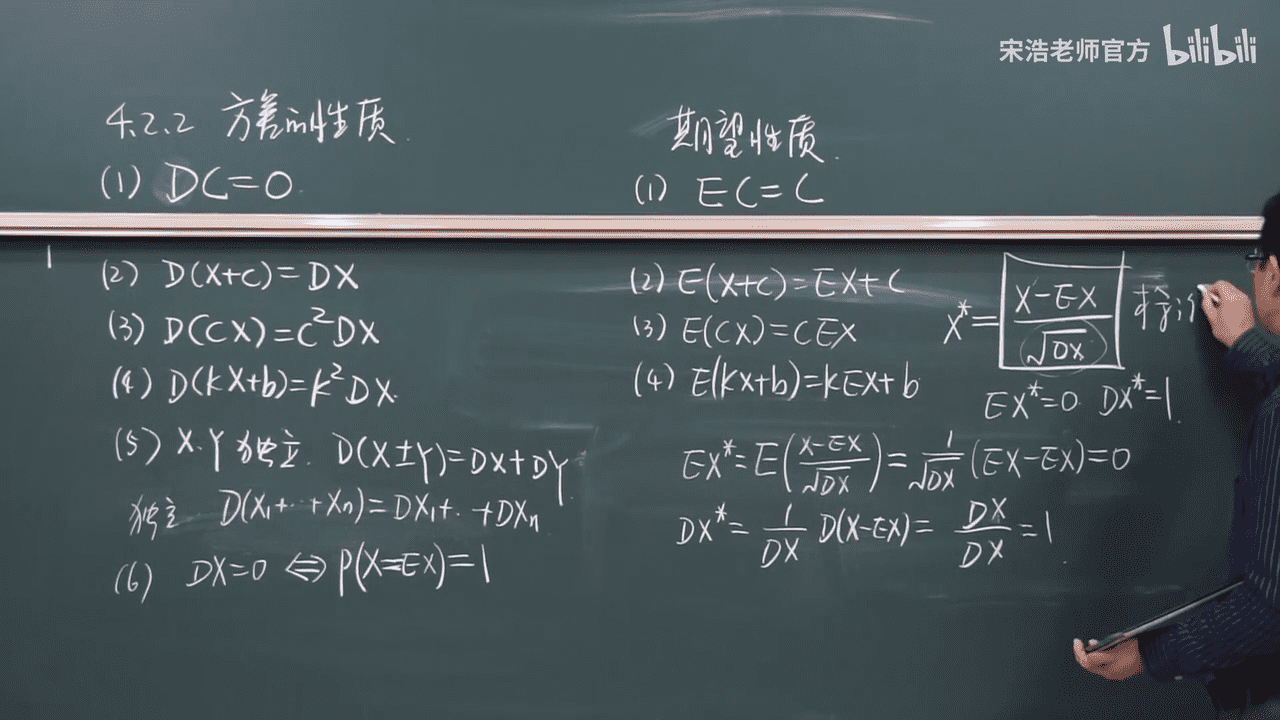 宋浩老师官方 bilibili
4.2.2 方差的性质.
(1) DC=0.
(2) D(X+C)=DX
(3) D(CX)=C²DX
(4) D(kX+b)=k²DX.
(5) X.Y独立. D(X±Y)=DX+DY
独立 D(X₁+··+Xₙ)=DX₁+··+DXₙ
(6) DX=0 ⇔ P(X=EX)=1
期望性质.
(1) EC=C
(2) E(X+C)=EX+C
(3) E(CX)=CEX
(4) E(kX+b)=kEX+b
X*= (X-EX)/√DX 标
EX*=0. DX*=1.
EX*=E((X-EX)/√DX)=1/√DX (EX-EX)=0
DX*=1/DX D(X-EX)=DX/DX=1.